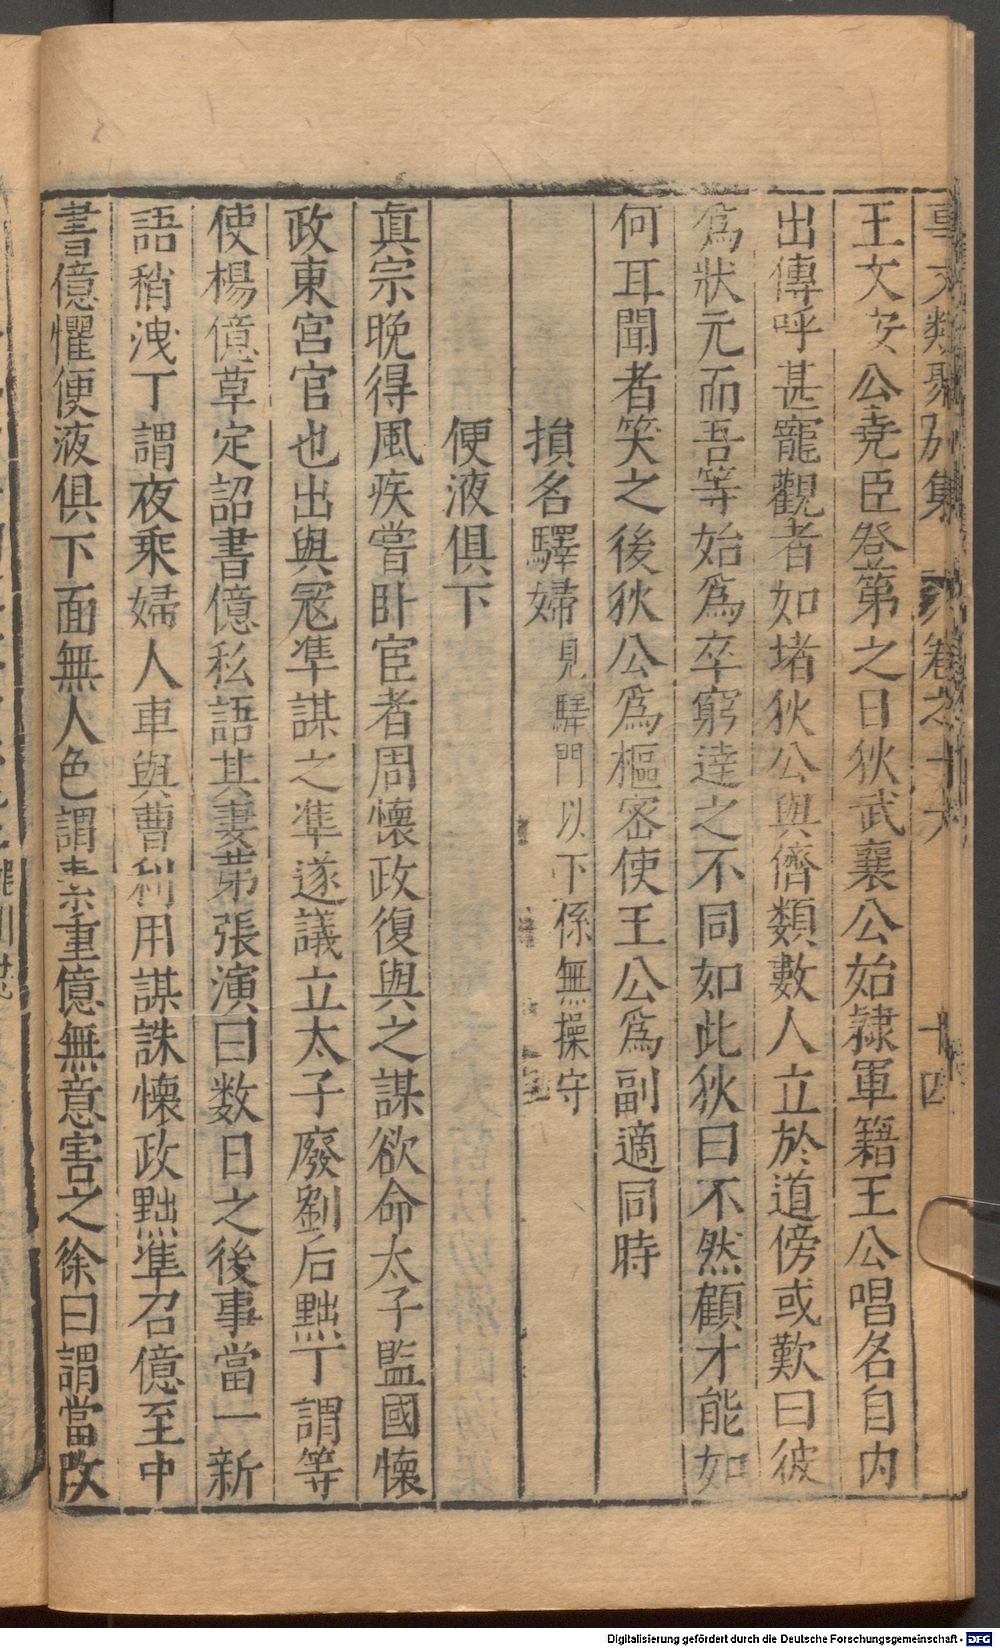 事文類聚別集 卷之十六 十四
王文安公堯臣登第之日狄武襄公始隸軍籍王公唱名自内
出傳呼甚寵觀者如堵狄公與儕類數人立於道傍或歎曰彼
爲狀元而吾等始爲卒窮達之不同如此狄曰不然顧才能如
何耳聞者笑之後狄公爲樞密使王公爲副適同時
損名驛婦見驛門以下係無操守
便液俱下
真宗晚得風疾嘗卧宦者周懷政復與之謀欲命太子監國懷
政東宮官也出與冦凖謀之凖遂議立太子廢劉后黜丁謂等
使楊億草定詔書億私語其妻弟張演曰数日之後事當一新
語稍洩丁謂夜乘婦人車與曹利用謀誅懷政黜凖召億至中
書億懼便液俱下面無人色謂素重億無意害之徐曰謂當改
Digitalisierung gefördert durch die Deutsche Forschungsgemeinschaft - DFG